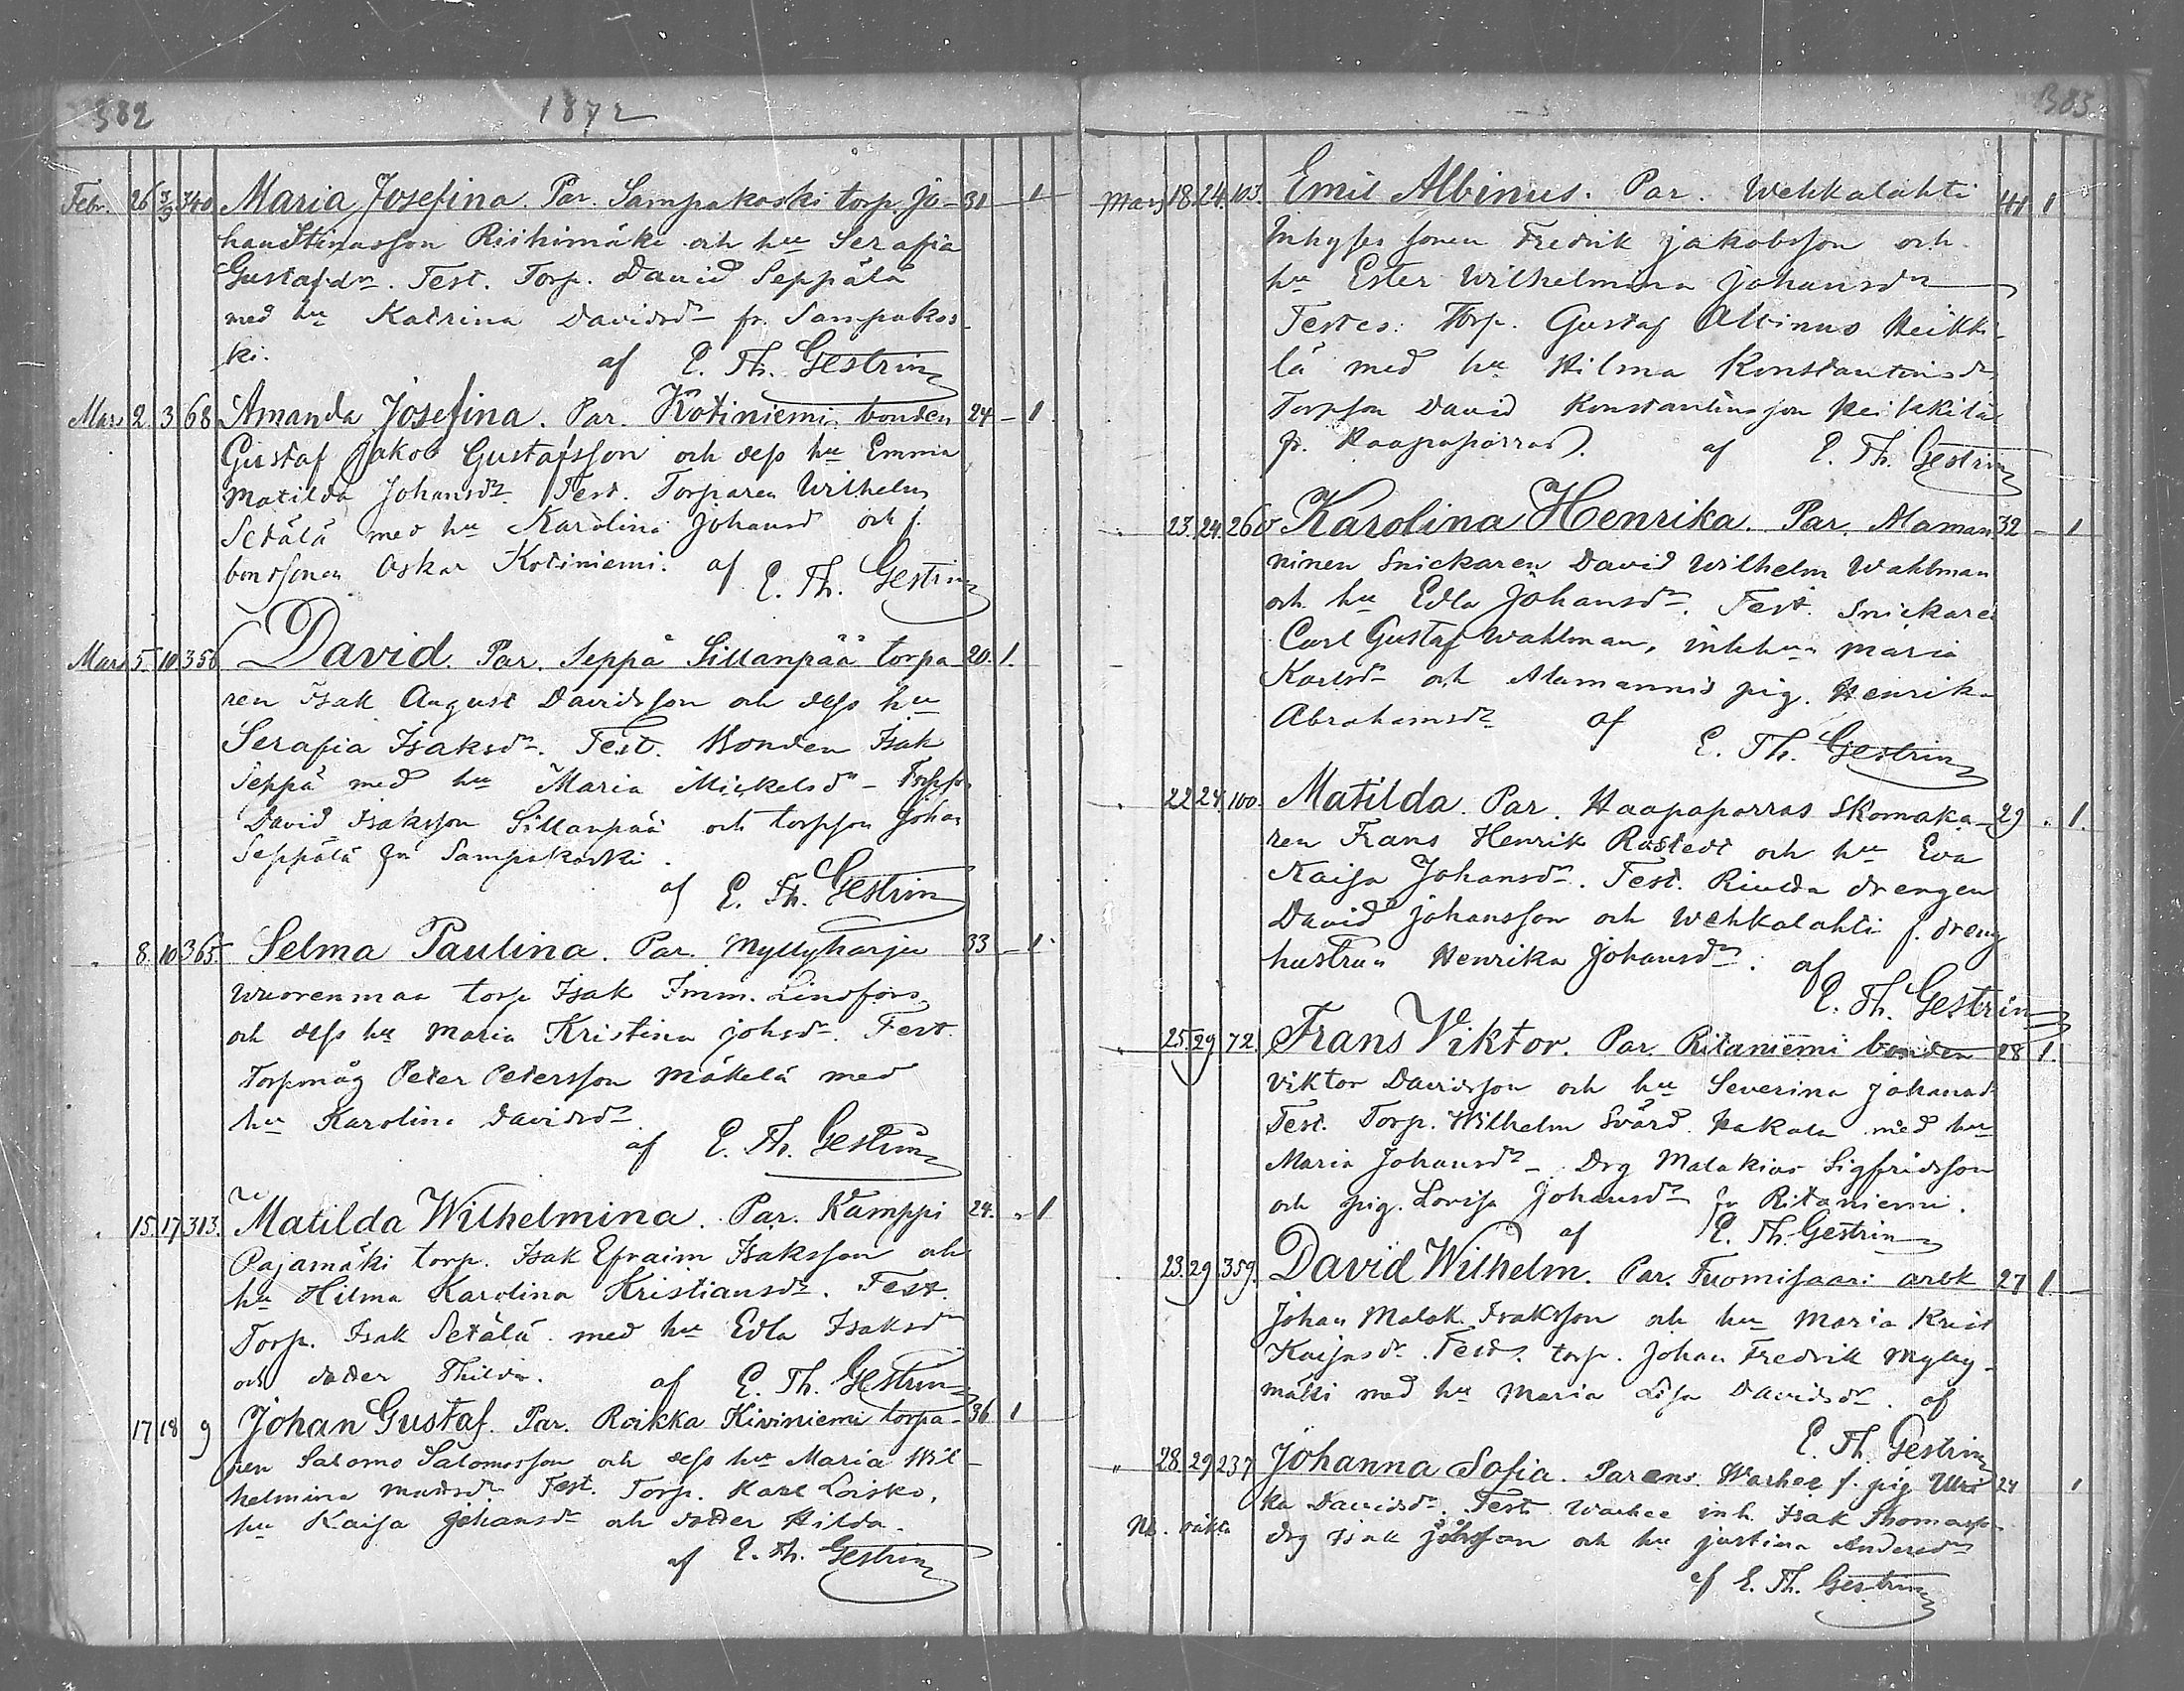 382 1872
Febr. 26 3/3 340 Maria Josefina. Par. Sampakoski torp. Jo- 31 1
han Stenasson Riihimäki och hu Serafia
Gustafdr. Test. Torp. David Seppälä
med hu Katrina Davidsdr fr. Sampakos-
ki. af E. Th. Gestrin
Mars 2. 3 68 Amanda Josefina. Par. Kotiniemi bonden 24 - 1
Gustaf Jakob Gustafsson och dess hu Emma
Matilda Johansdr. Test. Torparen Wilhelm
Setälä med hu Karolina Johansd och f.
bondsonen Oskar Kotiniemi. af E. Th. Gestrin
Mars 5. 10 358 David. Par. Seppä Sillanpää torpa- 20. 1.
ren Isak August Davidsson och dess hu
Serafia Isaksdr. Test. Bonden Isak
Seppä med hu Maria Mickelsdr - Torpso.
David Isaksson Sillanpää och torpson Johan
Seppälä frn Sampakoski.
af E. Th. Gestrin
" 8. 10 365. Selma Paulina. Par. Myllyharju 33 - 1
Wuorenmaa torp Isak Imm. Lindfors
och dess hu Maria Kristina Johsdr. Test.
Torpmåg Peter Petersson Mäkelä med
hu Karolina Davidsdr.
af E. Th. Gestrin
" 15. 17 313. Matilda Wilhelmina. Par. Kämppi 24. " 1
Pajamäki torp. Isak Efraim Isaksson och
hu Hilma Karolina Kristiansdr. Test.
Torp. Isak Setälä med hu Edla Isaksdr
och dotter Thilda. af E. Th. Gestrin
17 18 9 Johan Gustaf. Par. Roikka Kiviniemi torpa- 36. 1
ren Salomo Salomosson och dess hu Maria Wil-
helmina Matsdr. Test. Torp. Karl Loisko,
hu Kaisa Johansdr och dotter Hilda.
af E. Th. Gestrin
383
Mars 18. 24. 103. Emil Albinus. Par. Wehkalahti 41 1
Inhyses sonen Fredrik Jakobsson och
hu Ester Wilhelmina Johansdr
Testes: Torp. Gustaf Albinus Heikki-
lä med hu Hilma Konstantinsdr,
Torpson David Konstantinsson Heikkilä
fr. Haapaporras. af E. Th. Gestrin
" 23. 24. 260 Karolina Henrika. Par. Maman 32 - 1
ninen Snickaren David Wilhelm Wahlman
och hu Edla Johansdr. Test. Snickare
Carl Gustaf Wahlman, inhhun Maria
Karlsdr och Alamannis pig. Henrika
Abrahamsdr af
E. Th. Gestrin
" 22 24. 100. Matilda. Par. Haapaporras Skomaka- 29 . 1.
ren Frans Henrik Rostedt och hu Eva
Kaisa Johansdr. Test. Riulda drengen
David Johansson och Wehkalahti f. dreng
hustrun Henrika Johansdr. af
E. Th. Gestrin
" 25. 29 72. Frans Viktor. Par. Ritaniemi bonden 28 1.
Viktor Davidsson och hu Severina Johansd
Test. Torp. Wilhelm Svärd Hakala med hu
Maria Johansdr - Drg Malakias Sigfridsson
och pig. Lovisa Johansdr fr Ritaniemi.
af E. Th. Gestrin
23. 29 359. David Wilhelm. Par. Tuomisaari arbk 27 1
Johan Malak. Isaksson och hu Maria Krist
Kaijasdr. Test. torp. Johan Fredrik Mylly-
mäki med hu Maria Lisa Davidsdr. af
E. Th. Gestrin
" 28. 29 237 Johanna Sofia. Parens Warhee f. pig Ulri 24 1
ka Davidsdr. Test Warhee inh. Isak Thomasson
Nb. oäkta drg Isak Johsson och hu Justina Andersdr
af E. Th. Gestrin